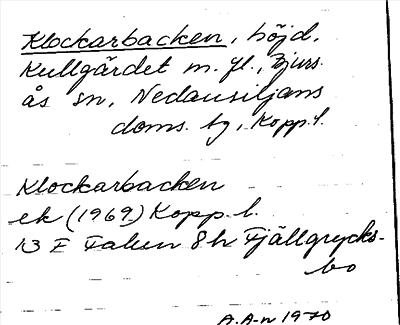 Klockarbacken, höjd,
Kullgärdet m. fl., Bjurs-
ås sn, Nedansiljans
doms. tg, Kopp. l.
Klockarbacken
ek (1969) Kopp. l.
13 F Falun 8h Fjällgrycks-
bo
A.A-n 1970